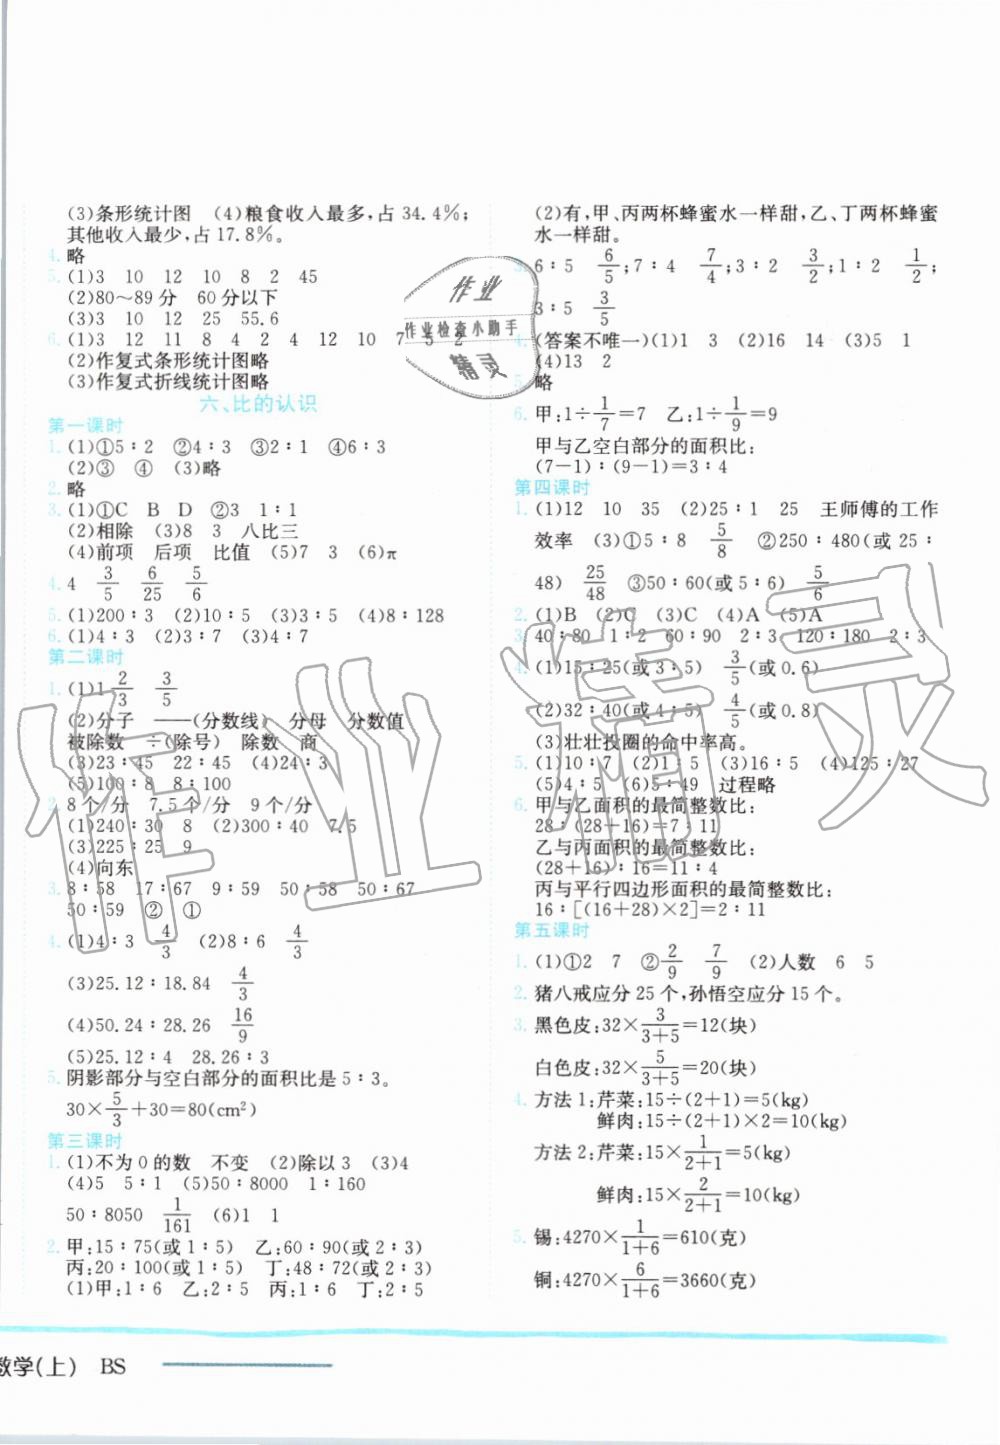 (3)条形统计图 (4)粮食收入最多,占 34.4%;
其他收入最少,占 17.8%。
4. 略
5. (1)3 10 12 10 8 2 45
(2)80~89 分 60 分以下
(3)3 10 12 25 55.6
6. (1)3 12 11 8 4 2 4 12 10 7 5 2
(2)作复式条形统计图略
(3)作复式折线统计图略
六、比的认识
第一课时
1. (1)①5∶2 ②4∶3 ③2∶1 ④6∶3
(2)③ ④ (3)略
2. 略
3. (1)①C B D ②3 1∶1
(2)相除 (3)8 3 八比三
(4)前项 后项 比值 (5)7 3 (6)π
4. 4 3/5 6/25 5/6
5. (1)200∶3 (2)10∶5 (3)3∶5 (4)8∶128
6. (1)4∶3 (2)3∶7 (3)4∶7
第二课时
1. (1)1 2/3 3/5
(2)分子 ——(分数线) 分母 分数值
被除数 ÷(除号) 除数 商
(3)23∶45 22∶45 (4)24∶3
(5)100∶8 8∶100
2. 8 个/分 7.5 个/分 9 个/分
(1)240∶30 8 (2)300∶40 7.5
(3)225∶25 9
(4)向东
3. 8∶58 17∶67 9∶59 50∶58 50∶67
50∶59 ② ①
4. (1)4∶3 4/3 (2)8∶6 4/3
(3)25.12∶18.84 4/3
(4)50.24∶28.26 16/9
(5)25.12∶4 28.26∶3
5. 阴影部分与空白部分的面积比是 5∶3。
30×5/3+30=80(cm²)
第三课时
1. (1)不为 0 的数 不变 (2)除以 3 (3)4
(4)5 5∶1 (5)50∶8000 1∶160
50∶8050 1/161 (6)1 1
2. 甲:15∶75(或 1∶5) 乙:60∶90(或 2∶3)
丙:20∶100(或 1∶5) 丁:48∶72(或 2∶3)
(1)甲:1∶6 乙:2∶5 丙:1∶6 丁:2∶5
(2)有,甲、丙两杯蜂蜜水一样甜,乙、丁两杯蜂蜜
水一样甜。
3. 6∶5 6/5;7∶4 7/4;3∶2 3/2;1∶2 1/2;
3∶5 3/5
4. (答案不唯一)(1)1 3 (2)16 14 (3)5 1
(4)13 2
5. 略
6. 甲:1÷1/7=7 乙:1÷1/9=9
甲与乙空白部分的面积比:
(7-1)∶(9-1)=3∶4
第四课时
1. (1)12 10 35 (2)25∶1 25 王师傅的工作
效率 (3)①5∶8 5/8 ②250∶480(或 25∶
48) 25/48 ③50∶60(或 5∶6) 5/6
2. (1)B (2)C (3)C (4)A (5)A
3. 40∶80 1∶2 60∶90 2∶3 120∶180 2∶3
4. (1)15∶25(或 3∶5) 3/5(或 0.6)
(2)32∶40(或 4∶5) 4/5(或 0.8)
(3)壮壮投圈的命中率高。
5. (1)10∶7 (2)1∶5 (3)16∶5 (4)125∶27
(5)4∶5 (6)5∶49 过程略
6. 甲与乙面积的最简整数比:
28∶(28+16)=7∶11
乙与丙面积的最简整数比:
(28+16)∶16=11∶4
丙与平行四边形面积的最简整数比:
16∶[(16+28)×2]=2∶11
第五课时
1. (1)①2 7 ②2/9 7/9 (2)人数 6 5
2. 猪八戒应分 25 个,孙悟空应分 15 个。
3. 黑色皮:32×3/3+5=12(块)
白色皮:32×5/3+5=20(块)
4. 方法 1:芹菜:15÷(2+1)=5(kg)
鲜肉:15÷(2+1)×2=10(kg)
方法 2:芹菜:15×1/2+1=5(kg)
鲜肉:15×2/2+1=10(kg)
5. 锡:4270×1/1+6=610(克)
铜:4270×6/1+6=3660(克)
数学(上) BS
作业
作业检查小助手
精灵
作业精灵